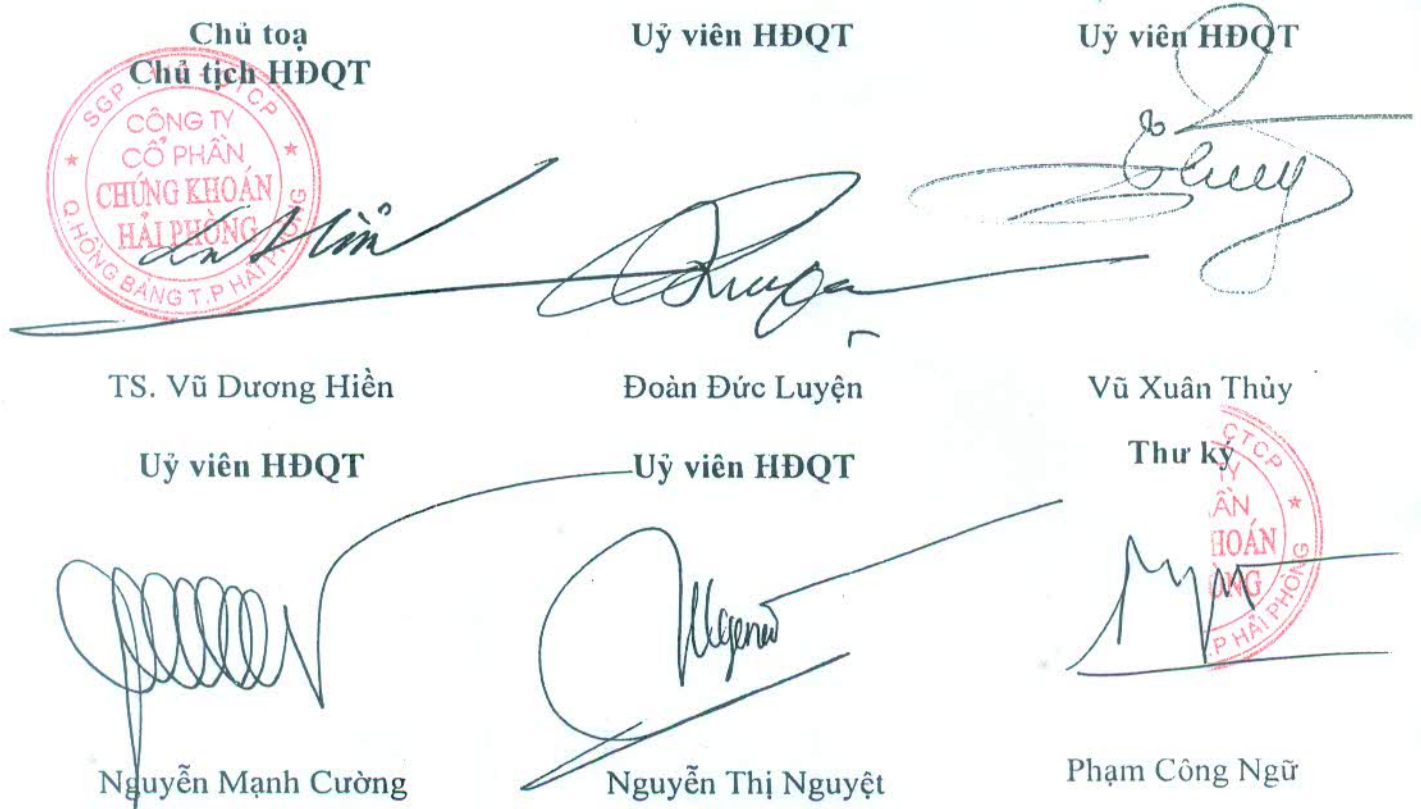 Chủ toạ
Chủ tịch HĐQT
Uỷ viên HĐQT
Uỷ viên HĐQT
SGP CTCP
CÔNG TY
CỔ PHẦN
CHỨNG KHOÁN
HẢI PHÒNG
Q.HỒNG BÀNG T.P HẢI PHÒNG
TS. Vũ Dương Hiền
Đoàn Đức Luyện
Vũ Xuân Thủy
Uỷ viên HĐQT
Uỷ viên HĐQT
Thư ký
CTCP
TY
ẦN
HOÁN
ÒNG
.P HẢI PHÒNG
Nguyễn Mạnh Cường
Nguyễn Thị Nguyệt
Phạm Công Ngữ